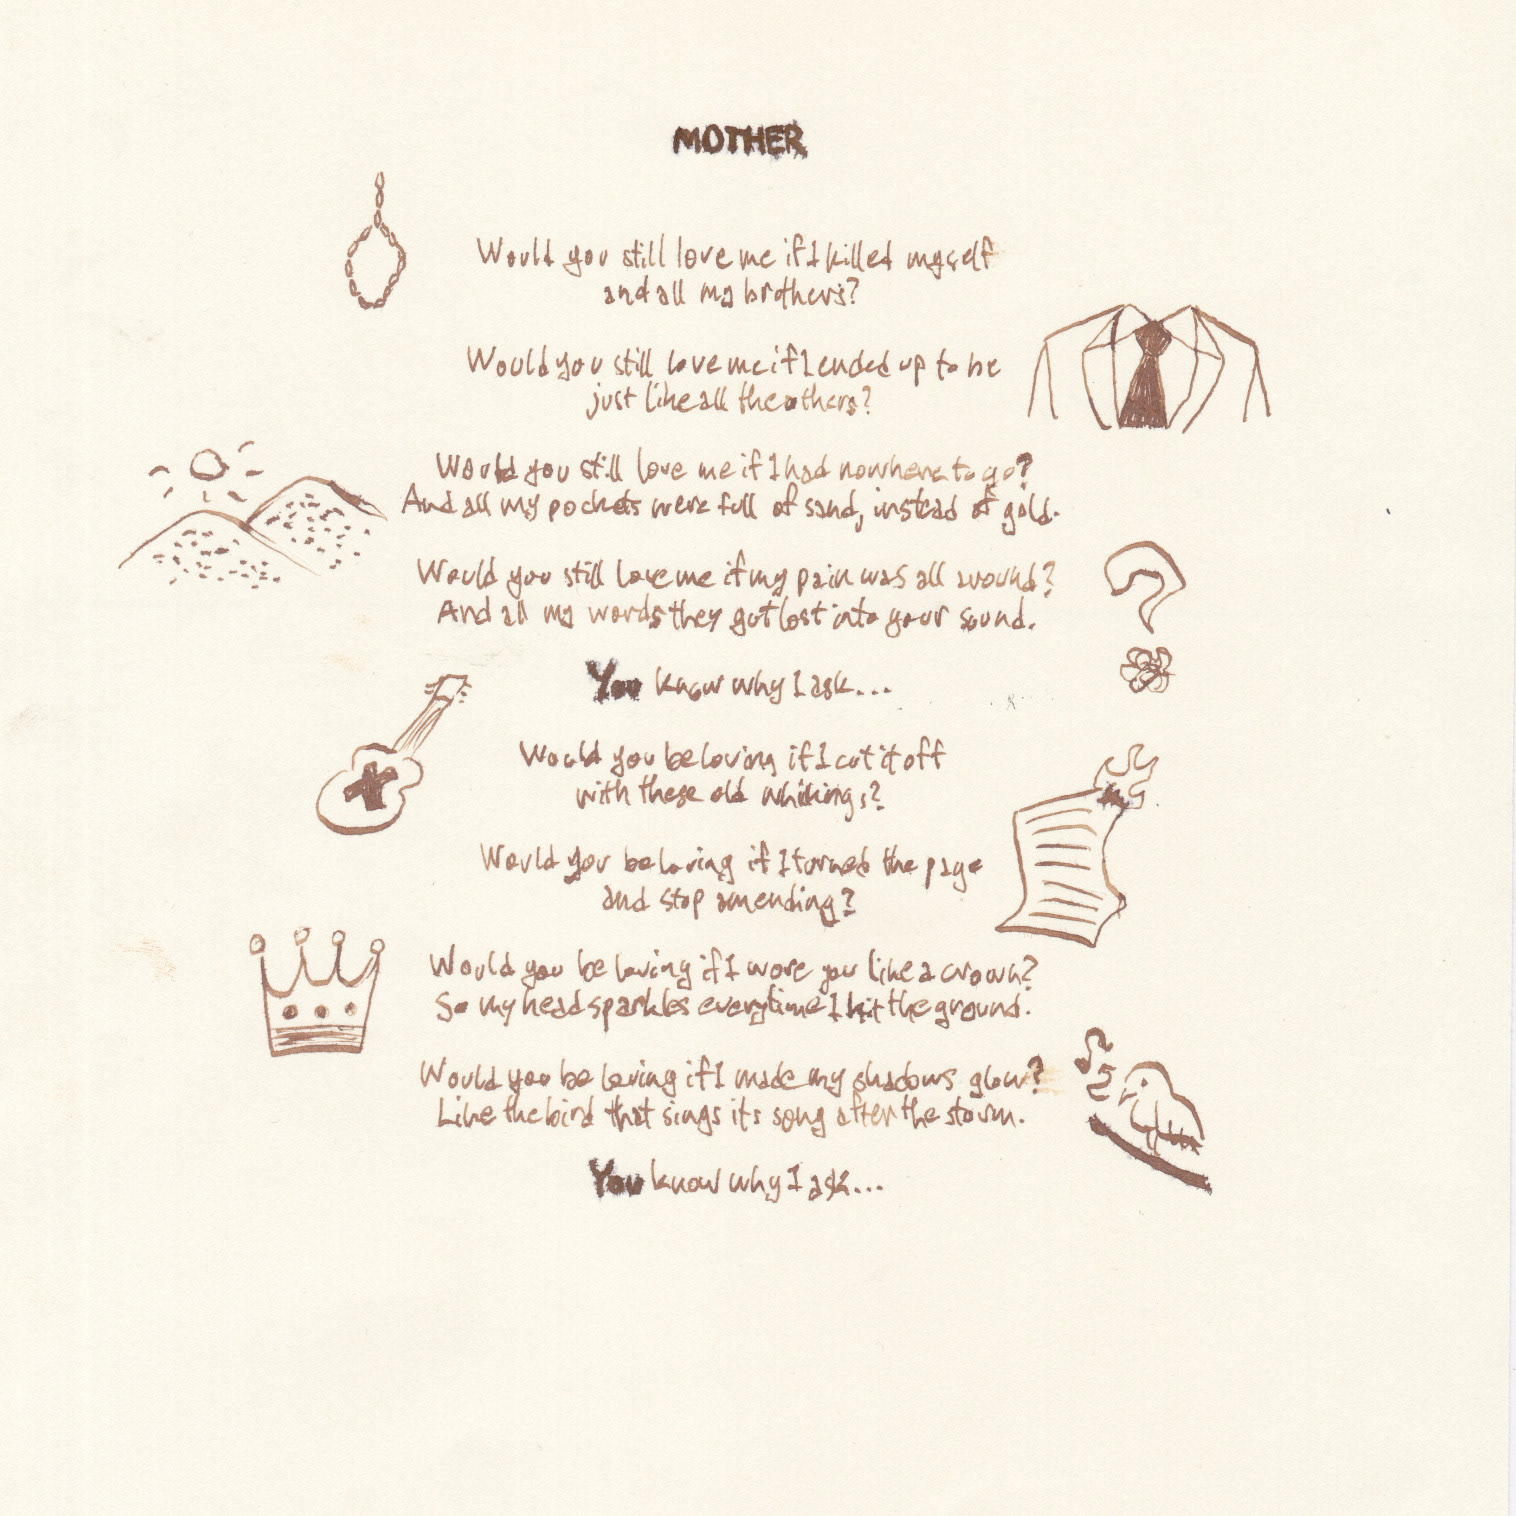 MOTHER
Would you still love me if I killed myself
and all my brothers?
Would you still love me if I ended up to be
just like all the others?
Would you still love me if I had nowhere to go?
And all my pockets were full of sand, instead of gold.
Would you still love me if my pain was all around?
And all my words they got lost into your sound.
You know why I ask...
Would you be loving if I cut it off
with these old whinings?
Would you be loving if I turned the page
and stop amending?
Would you be loving if I wore you like a crown?
So my head sparkles everytime I hit the ground.
Would you be loving if I made my shadows glow?
Like the bird that sings its song after the storm.
You know why I ask...